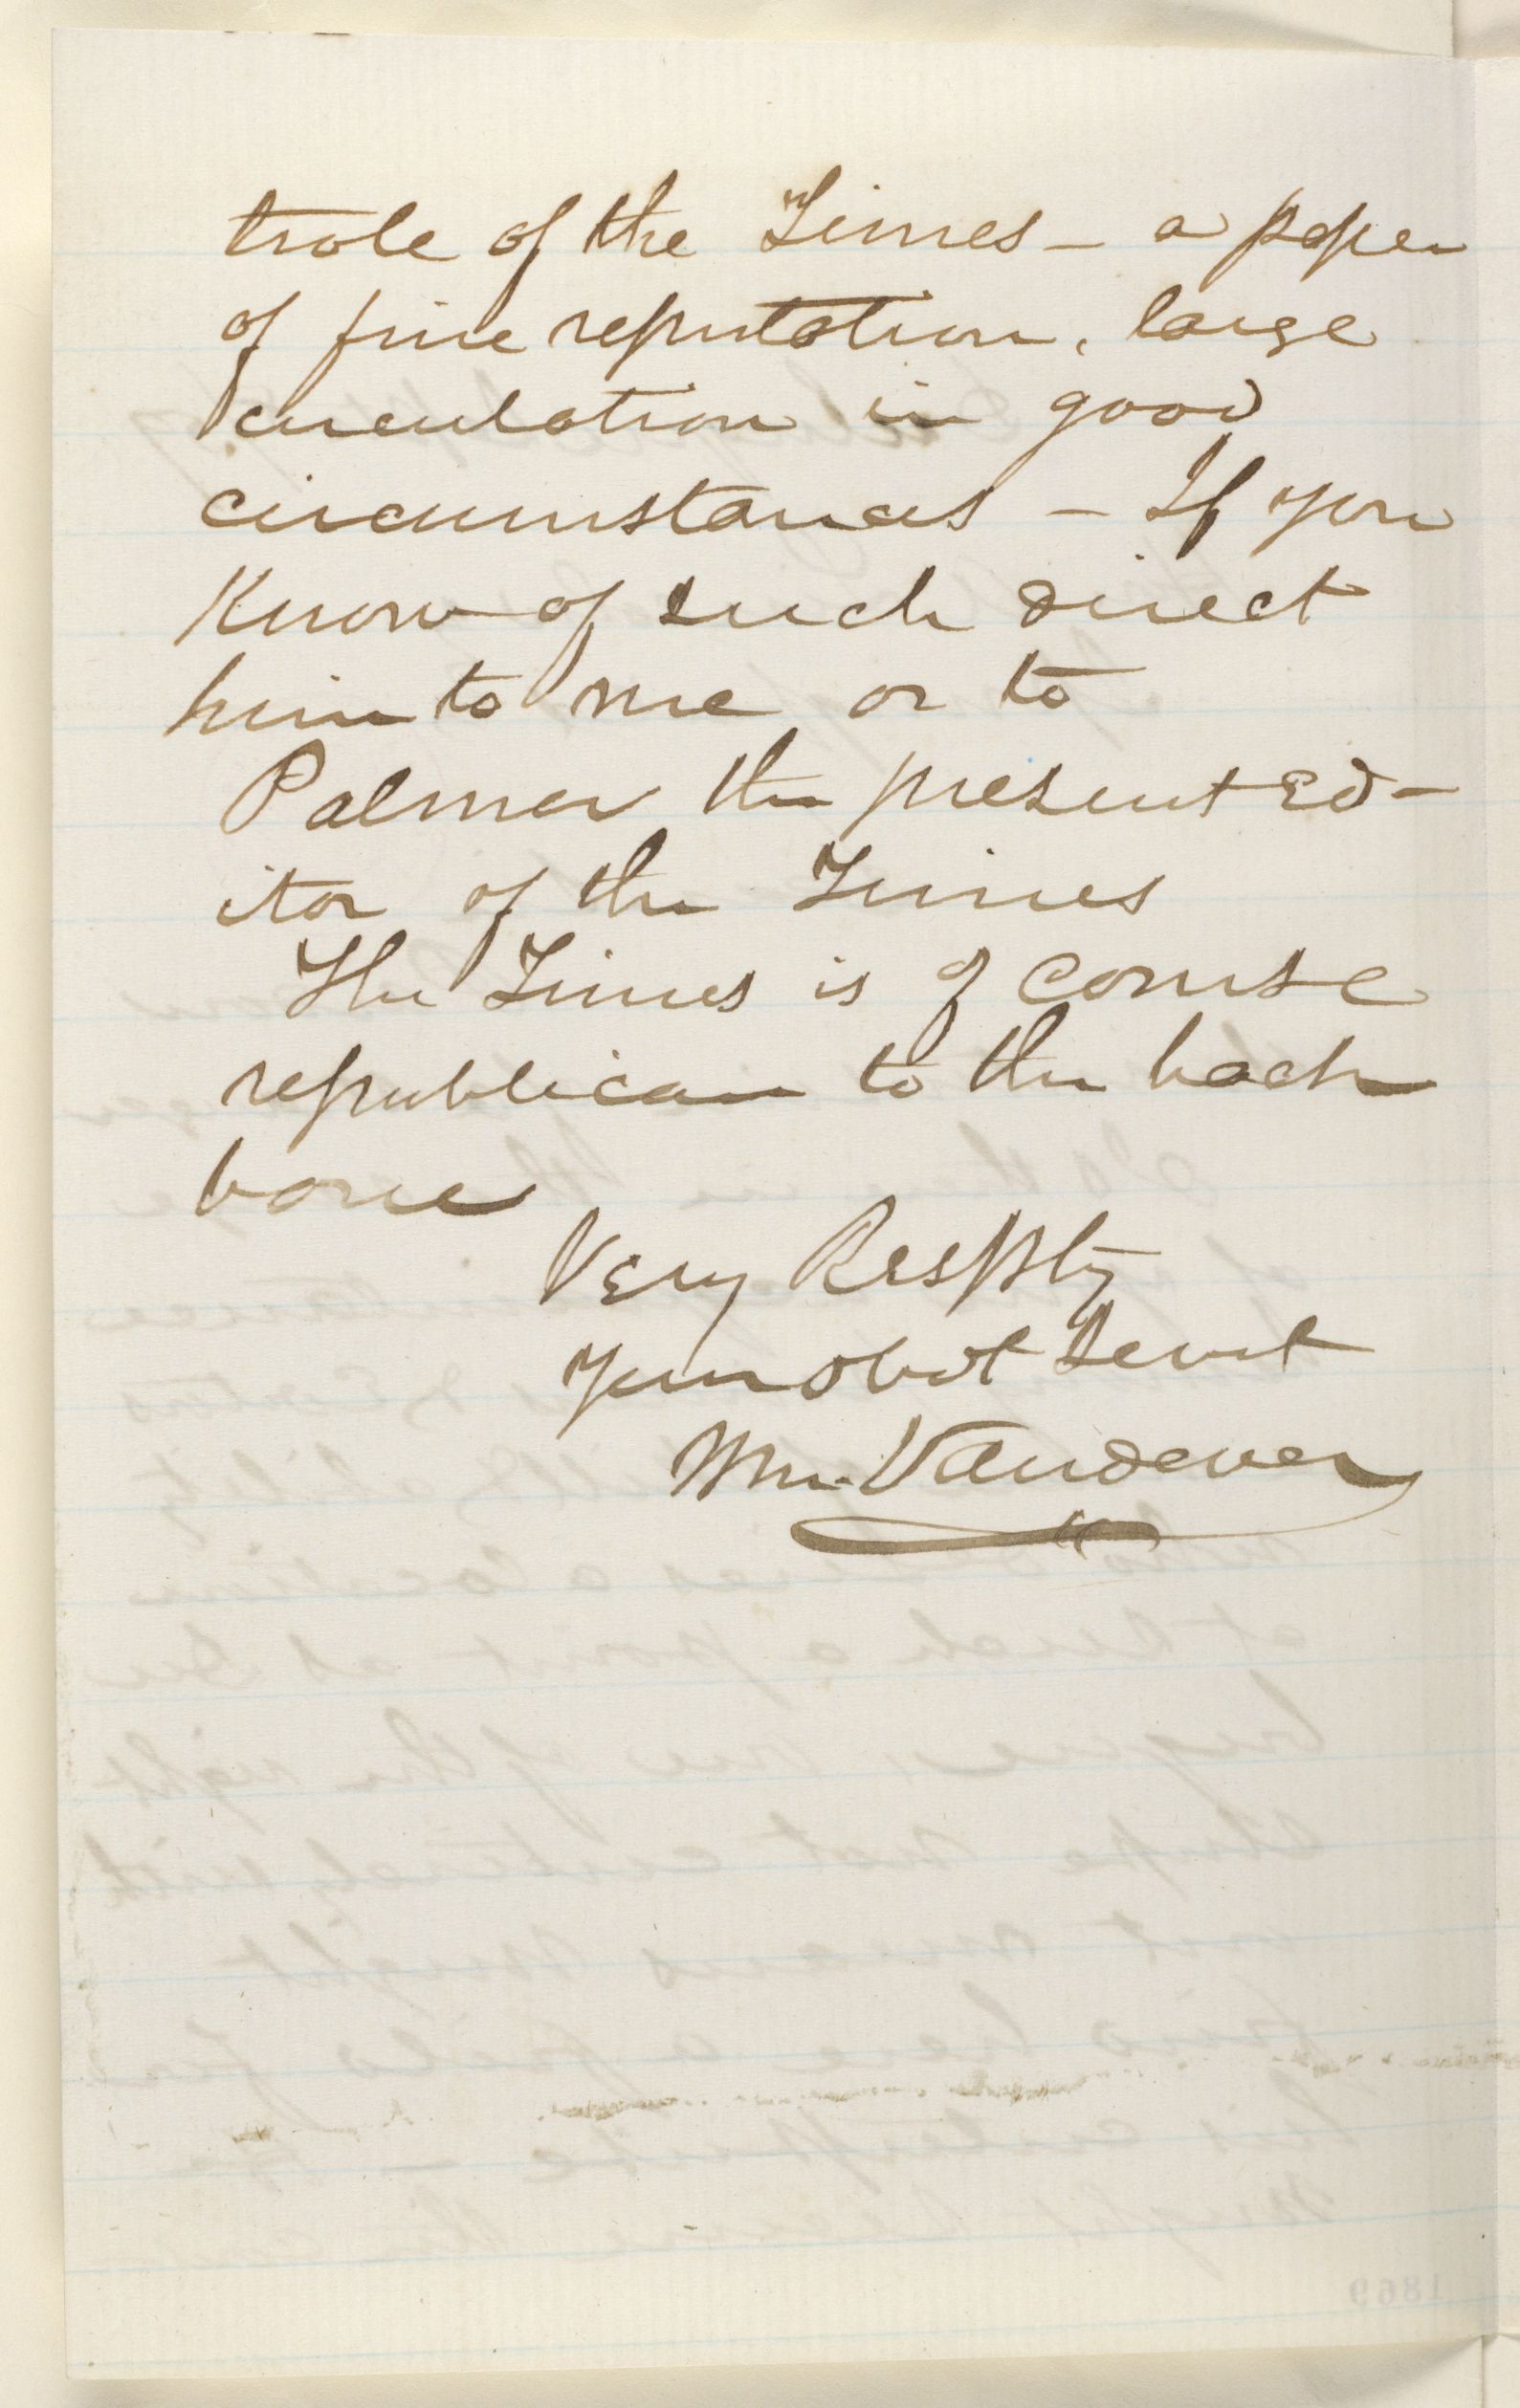 trole of the Times – a paper
of fine reputation, large
circulation in good
circumstances – If you
Know of such direct
him to me or to
Palmer the present Ed-
itor of the Times
The Times is of course
republican to the back
bone
Very Resptly
Your obdt Servt
Wm. Vandever
1869